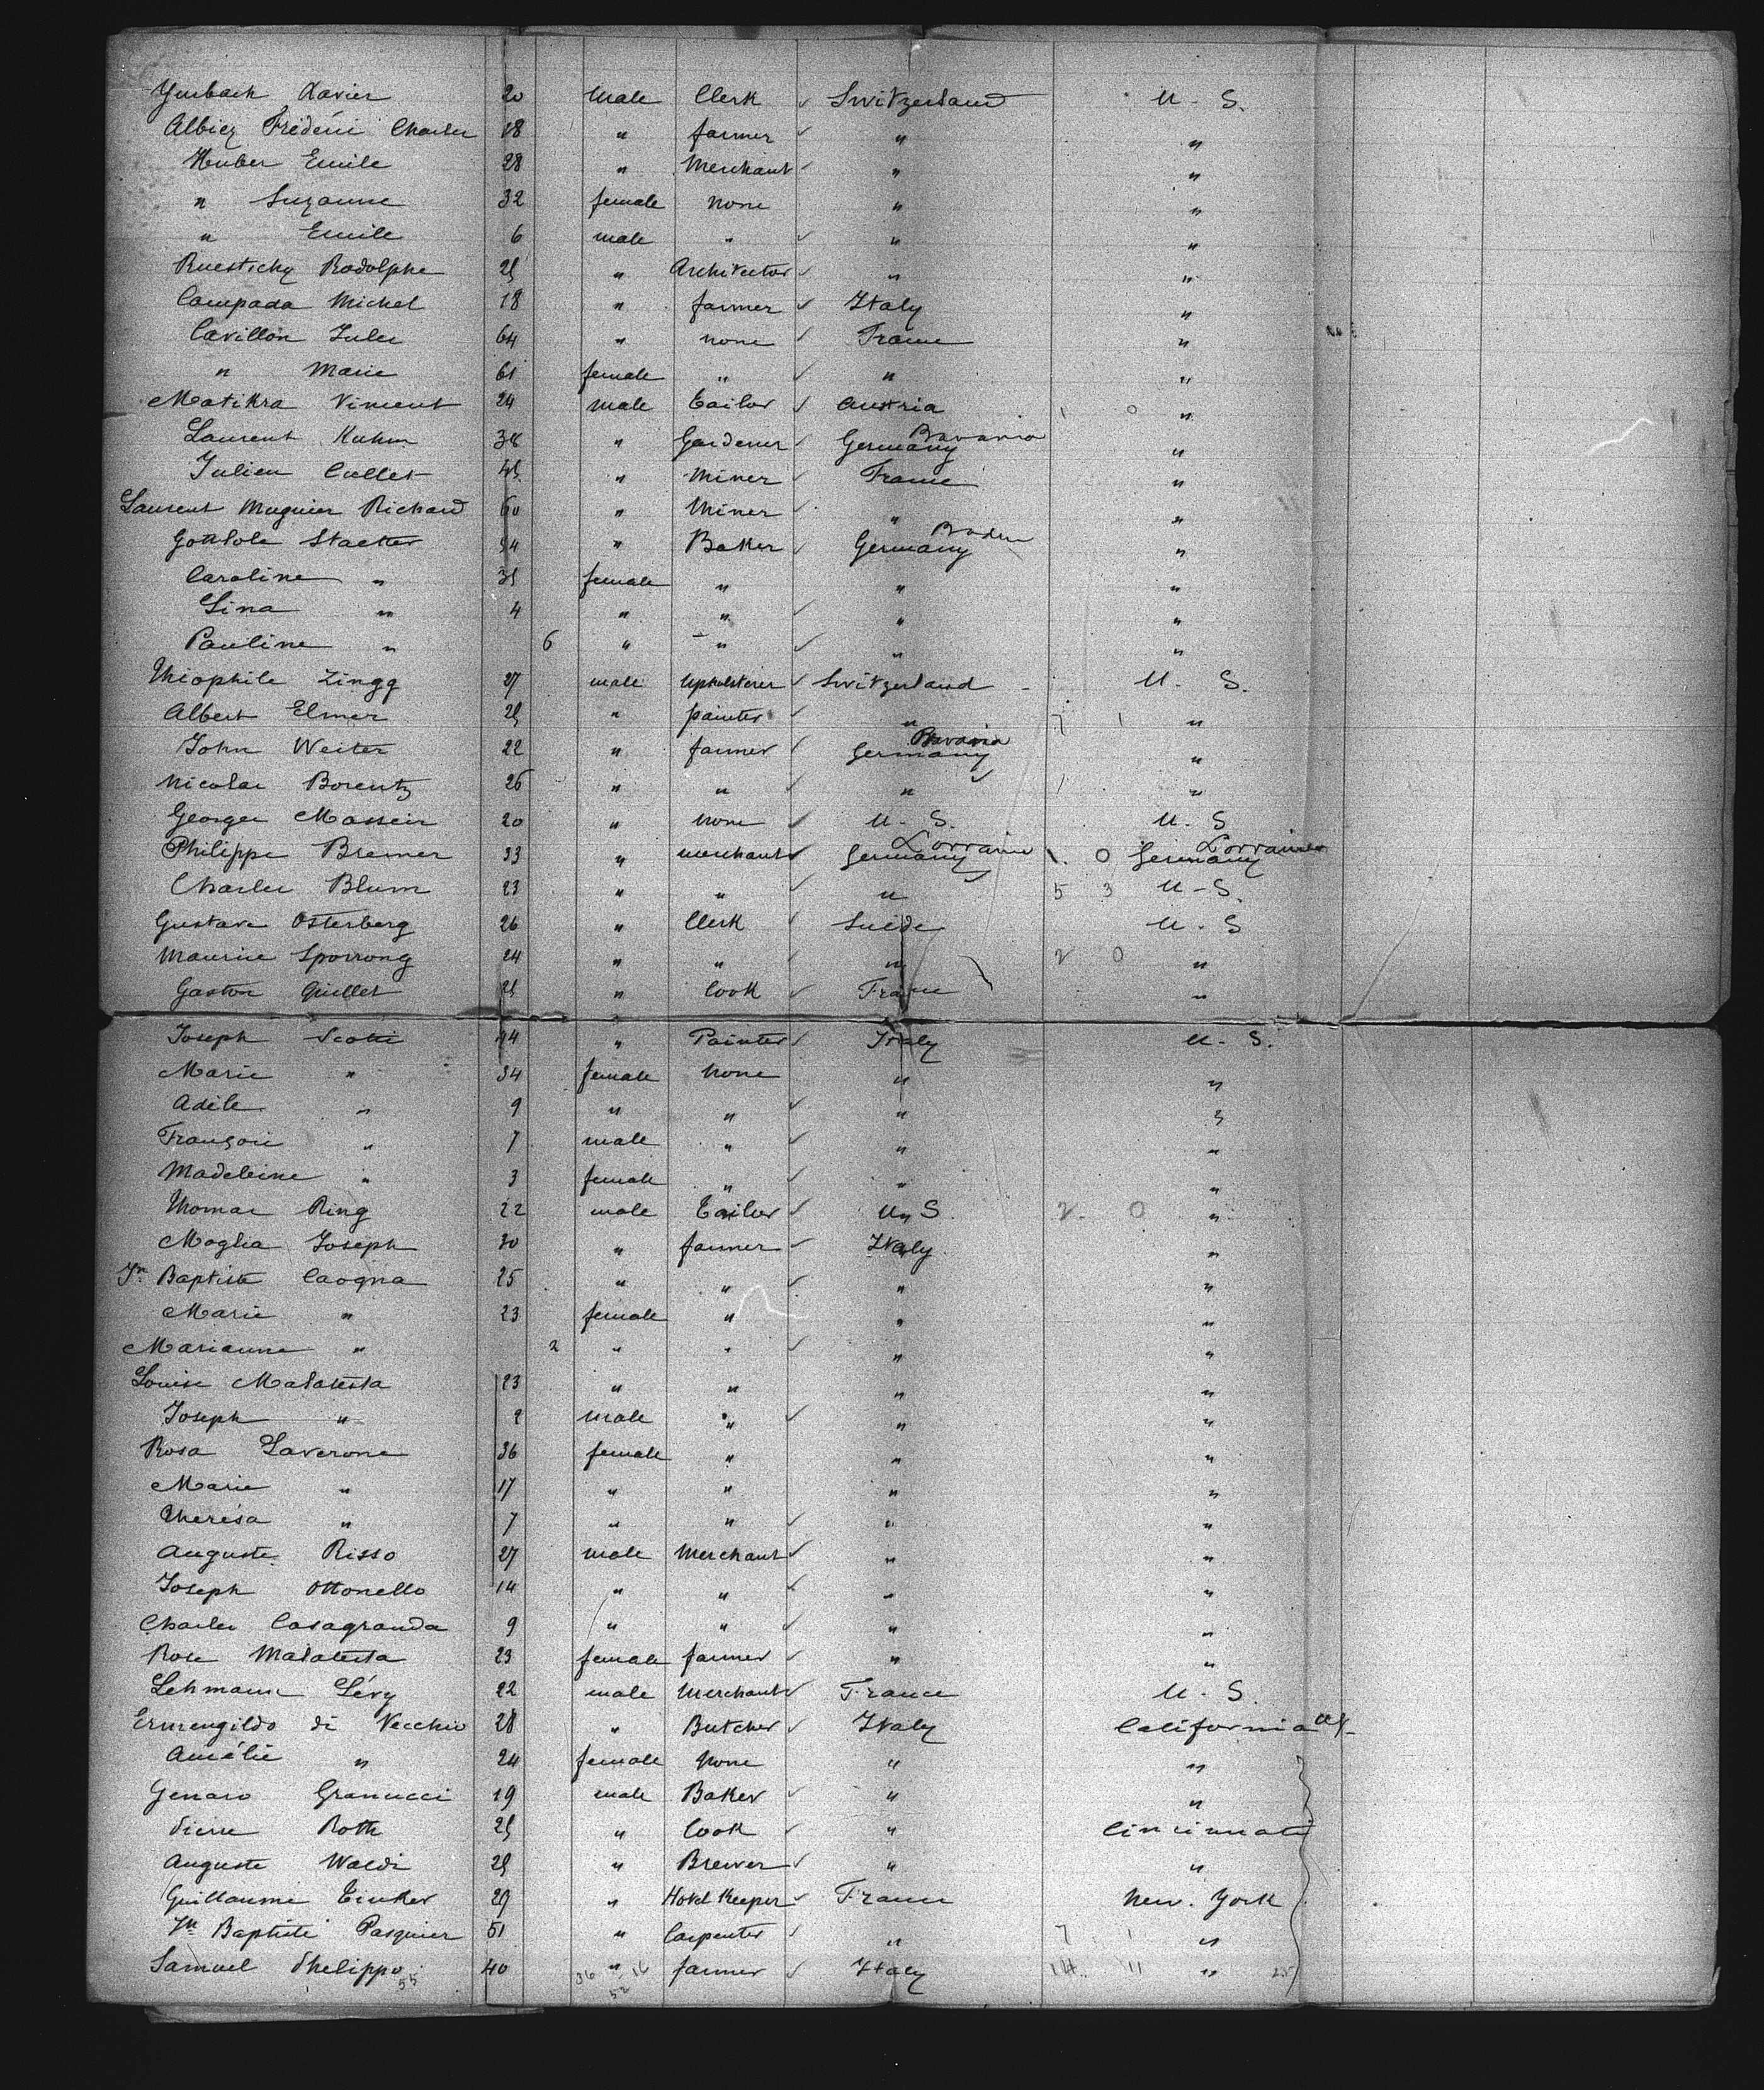 Xavier 20 Male Clerk Switzerland U. S.
Albiez Frédéric Charles 18 " farmer " "
Huber Emile 28 " Merchant " "
" Suzanne 32 female none " "
" Emile 6 male " " "
Ruestichy Rodolphe 25 " Architector " "
Campada Michel 18 " farmer Italy "
Cavillon Jules 64 " none France "
" Marie 61 female " " "
Matikra Vincent 24 male Tailor Austria 1 0 "
Laurent Kuhn 38 " Gardener Germany Bavaria "
Julien Collet 45 " Miner France "
Laurent Muguier Richard 60 " Miner " "
Staetter 34 " Baker Germany Baden "
Caroline " 35 female " " "
Lina " 4 " " " "
Pauline " 6 " " " "
Théophile Zingg 27 male Upholsterer Switzerland U. S.
Albert Elmer 25 " painter " 7 1 "
John Weiter 22 " farmer Germany Bavaria "
Nicolas Borentz 26 " " " 1 "
Georges Massein 20 " none U. S. U. S
Philippe Bremer 33 " merchant Germany Lorraine 1. 0 Germany Lorraine
Charles Blum 23 " " " 5 3 U-S.
Gustave Osterberg 26 " Clerk Suède U. S
Maurice Sporrong 24 " " " 2 0 "
Gaston Quillet 25 " Cook France "
Joseph Scotti 44 " Painter Italy U. S.
Marie " 34 female None " "
Adèle " 9 " " " "
François " 7 male " " "
Madeleine " 3 female " " "
Thomas Ring 22 male Tailor U. S 2. 0 "
Moglia Joseph 30 " farmer Italy "
Jn Baptiste Caogna 25 " " " "
Marie " 23 female " " "
Marianne " 2 " " " "
Louise Malatesta 23 " " " "
Joseph " 2 male " " "
Rosa Laverone 36 female " " "
Marie " 17 " " " "
Thérésa " 7 " " " "
Auguste Risso 27 male Merchant " "
Joseph Ottonello 14 " " " "
Charles Casagranda 9 " " " "
Rose Malatesta 23 female farmer " "
Lehmann Lévy 22 male Merchant France U. S.
Ermengildo di Vecchio 28 " Butcher Italy California
Amélie " 24 female None " "
Genaro Granucci 19 male Baker " "
Pierre Roth 25 " Cook " Cincinnati
Auguste Waldi 25 " Brewer " "
Guillaume Tinker 29 " Hotel Keeper France New. York
Jn Baptiste Pasquier 51 " Carpenter " 7 1 "
Samuel Phelippo 55 40 36 " 16 farmer Italy 14. 11 " 25
52